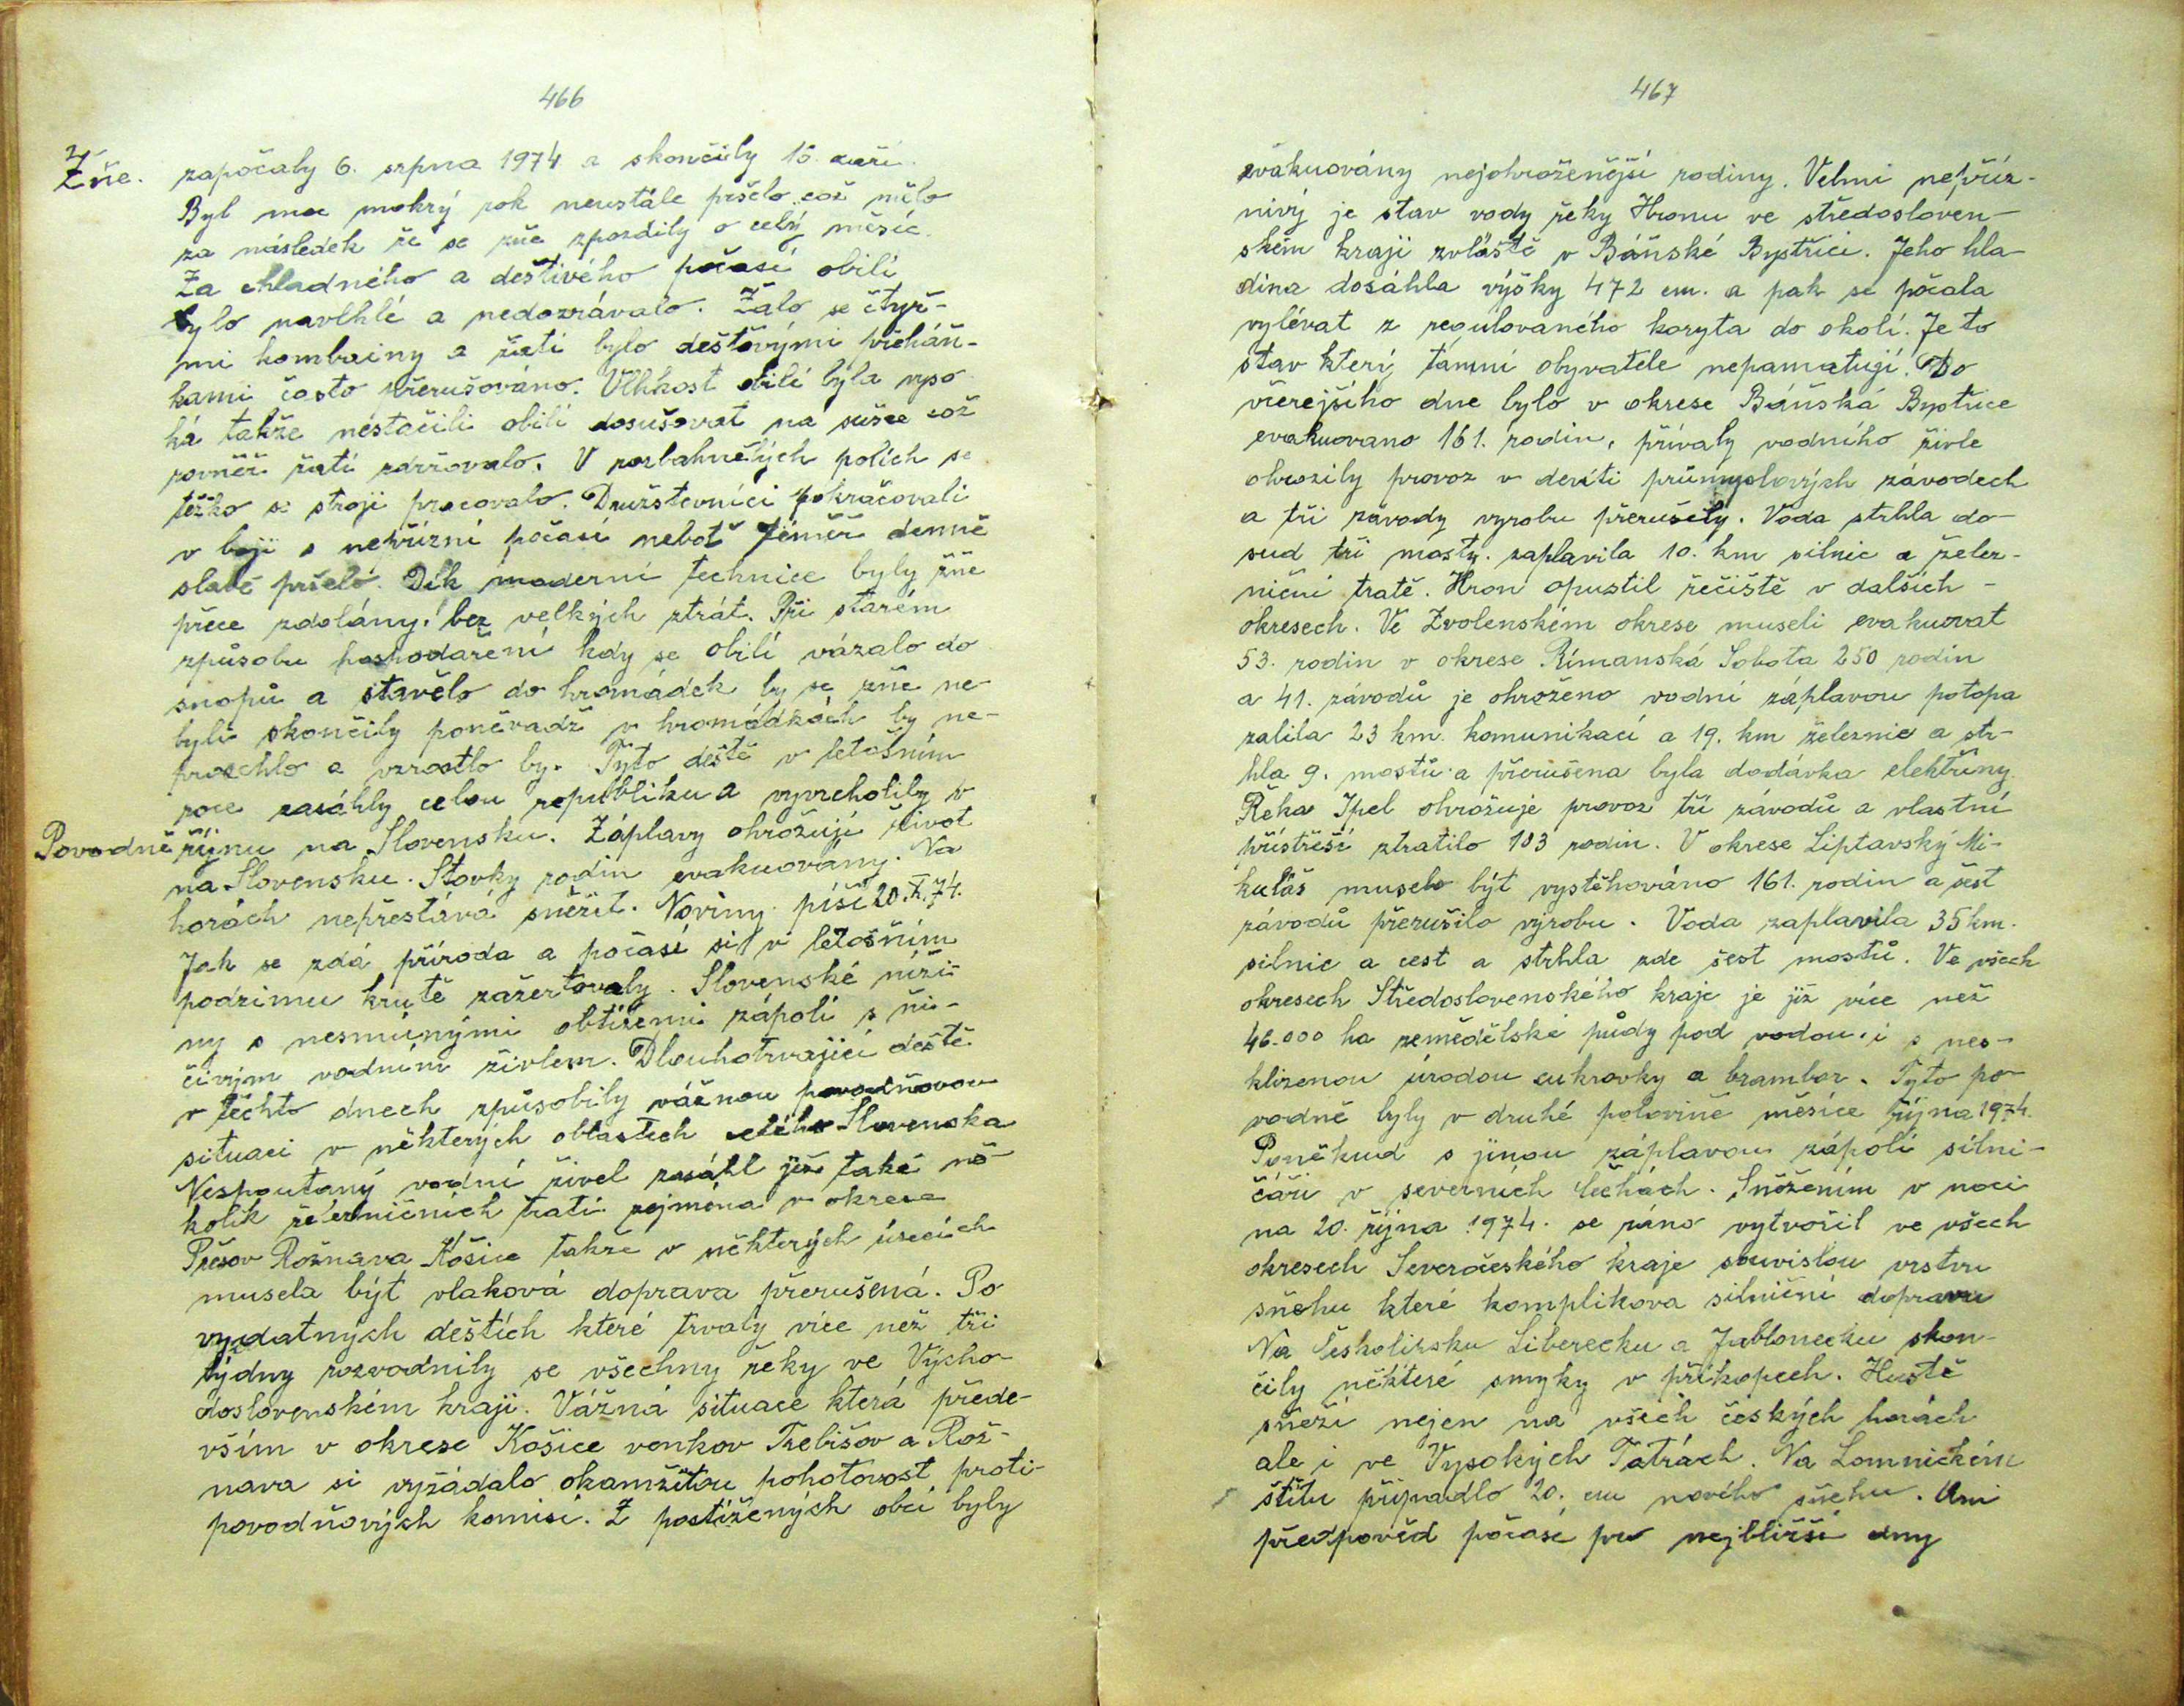 466
Žně. započaly 6. srpna 1974 a skončily 15. září.
Byl moc mokrý rok neustále pršelo což mělo
za následek že se žně zpozdily o celý měsíc.
Za chladného a deštivého počasí obilí
bylo navlhlé a nedozrávalo. Žalo se čtyř-
mi kombainy a žetí bylo dešťovými přeháň-
kami často přerušováno. Vlhkost obilí byla vyso
ká takže nestačili obilí dosušovat na sušce což
rovněž žetí zdržovalo. V rozbahnělých polích se
těžko se stroji pracovalo. Družstevníci pokračovali
v boji s nepřízní počasí neboť téměř denně
slabě pršelo. Dík moderní technice byly žně
přece zdolány. bez velkých ztrát. Při starém
způsobu hospodaření kdy se obilí vázalo do
snopů a stavělo do hromádek by se žně ne
byli skončily poněvadž v hromádkách by ne-
proschlo a vzrostlo by. Tyto deště v letošním
roce zasáhly celou republiku a vyvrcholily v
Povodně říjnu na Slovensku. Záplavy ohrožují život
na Slovensku. Stovky rodin evakuovány. Na
horách nepřestává sněžit. Noviny píší 20.X.74.
Jak se zdá příroda a počasí si v letošním
podzimu krutě zažertovaly. Slovenské níži-
ny s nesmírnými obtížemi zápolí s ni-
čivým vodním živlem. Dlouhotrvající deště
v těchto dnech způsobily vážnou povodňovou
situaci v některých oblastech celého Slovenska
Nespoutaný vodní živel zasáhl již také ně
kolik železničních tratí zejména v okrese
Prešov Rožnava Košice takže v některých úsecích
musela být vlaková doprava přerušená. Po
vydatných deštích které trvaly více než tři
týdny rozvodnily se všechny řeky ve Výcho-
doslovenském kraji. Vážná situace která přede-
vším v okrese Košice venkov Trebišov a Rož-
nava si vyžádalo okamžitou pohotovost proti-
povodňových komisí. Z postižených obcí byly
467
evakuovány nejohroženější rodiny. Velmi nepříz-
nivý je stav vody řeky Hronu ve středosloven-
ském kraji zvláště v Báňské Bystřici. Jeho hla
dina dosáhla výšky 472 cm. a pak se počala
vylévat z regulovaného koryta do okolí. Je to
stav který tamní obyvatele nepamatují. Do
včerejšího dne bylo v okrese Báňská Bystrice
evakuovano 161. rodin, přívaly vodního živle
ohrozily provoz v devíti průmyslových závodech
a tři závody vyrobu přerušily. Voda strhla do-
sud tři mosty. zaplavila 10. km silnic a želez-
niční tratě. Hron opustil řečiště v dalších -
okresech. Ve Zvolenském okrese museli evakuovat
53. rodin v okrese Rimanská Sobota 250 rodin
a 41. závodů je ohroženo vodní záplavou potopa
zalila 23 km. komunikací a 19. km železnic a str-
hla 9. mostů a přerušena byla dodávka elektřiny.
Řeka Ipel ohrožuje provoz tří závodů a vlastní
přístřeší ztratilo 183 rodin. V okrese Liptavský Mi-
kuláš muselo být vystěhováno 161. rodin a šest
závodů přerušilo výrobu. Voda zaplavila 35 km.
silnic a cest a strhla zde šest mostů. Ve všech
okresech Středoslovenského kraje je již více než
46.000 ha zemědělské půdy pod vodou. i s nes-
klizenou úrodou cukrovky a brambor. Tyto po-
vodně byly v druhé polovině měsíce října 1974.
Poněkud s jinou záplavou zápolí silni-
čáři v severních Čechách. Sněžením v noci
na 20. října 1974. se ráno vytvořil ve všech
okresech Severočeského kraje souvislou vrstvu
sněhu které komplikova silniční dopravu
Na Českolipsku Liberecku a Jablonecku skon-
čily některé smyky v příkopech. Hustě
sněží nejen na všech českých horách
ale i ve Vysokých Tatrách. Na Lomnickém
štítu připadlo 20. cm nového sněhu. Ani
předpověd počasí pro nejbližší dny